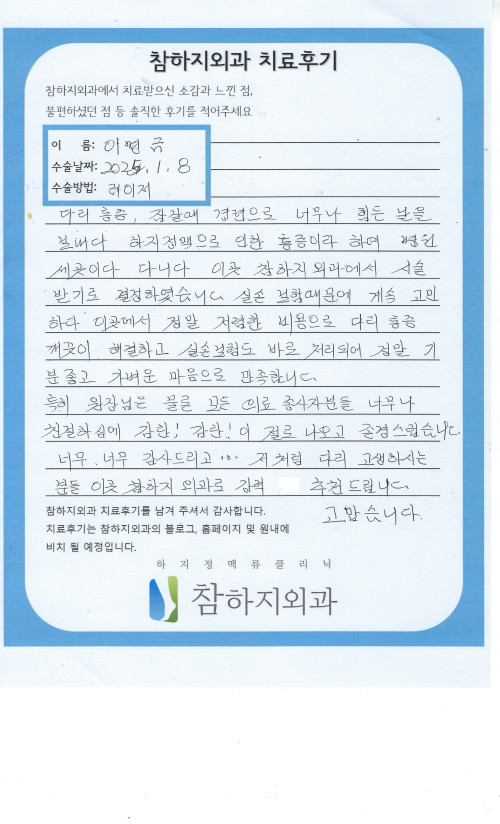 참하지외과 치료후기
참하지외과에서 치료받으신 소감과 느낀 점,
불편하셨던 점 등 솔직한 후기를 적어주세요
이 름: 이연금
수술날짜: 2025.1.8
수술방법: 레이저
다리 통증, 잠잘때 경련으로 너무나 힘든 날을
보내다 하지정맥으로 인한 통증이라 하여 병원
세곳이다 다니다 이곳 참하지외과에서 시술
받기로 결정하였습니다. 실손 보험때문에 계속 고민
하다 이곳에서 정말 저렴한 비용으로 다리 통증
깨끗이 해결하고 실손보험도 바로 처리되어 정말 기
분좋고 가벼운 마음으로 만족합니다.
특히 원장님은 물론 모든 의료 종사자분들 너무나
친절하심에 감탄! 감탄!이 절로 나오고 존경스럽습니다.
너무.너무 감사드리고... 저처럼 다리 고생하시는
분들 이곳 참하지 외과로 강력 추천드립니다.
고맙습니다.
참하지외과 치료후기를 남겨 주셔서 감사합니다.
치료후기는 참하지외과의 블로그, 홈페이지 및 원내에
비치 될 예정입니다.
하지정맥류클리닉
참하지외과